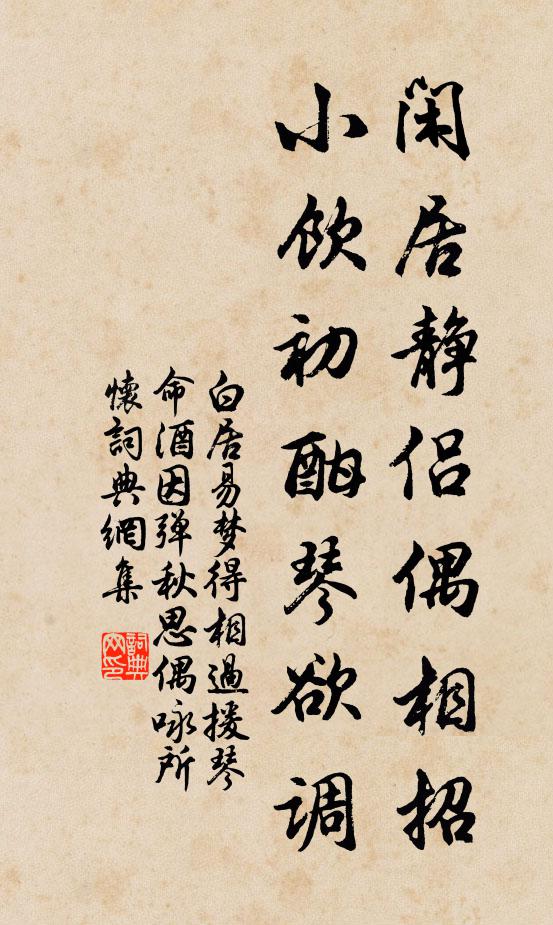 闲居静侣偶相招
小饮初酣琴欲调
白居易梦得相過援琴
命酒因弹秋思偶咏所
懷詞典網集
詞典
网印